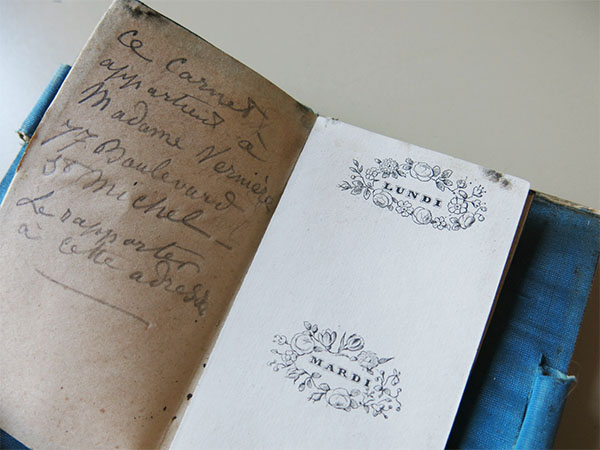 Ce Carnet
appartient à
Madame Vernière
77 Boulevard
St Michel -
Le rapporter
à cette adresse
LUNDI
MARDI